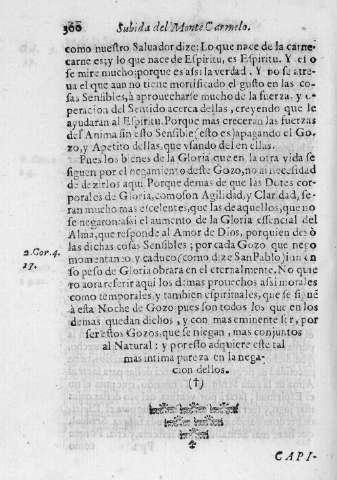 360 Subida del Monte Carmelo.
como nuestro Salvador dize: Lo que nace de la carne
carne es; y lo que nace de Espiritu, es Espiritu. Y esto
se mire mucho; porque es assi la verdad. Y no se atre-
ua el que aun no tiene mortificado el gusto en las co-
sas Sensibles, à aprouecharse mucho de la fuerza, y o-
peracion del Sentido acerca dellas, creyendo que le
ayudaran al Espiritu. Porque mas creceran las fuerzas
del Anima sin esto Sensible; esto es) apagando el Go-
zo, y Apetito dellas, que vsando del en ellas.
Pues los bienes de la Gloria que en la otra vida se
siguen por el negamiento deste Gozo, no ai necessidad
de dezirlos aqui. Porque demas de que las Dotes cor-
porales de Gloria, como son Agilidad, y Claridad, se-
ran mucho mas escelentes, que las de aquellos, que no
se negaron: assi el aumento de la Gloria essencial del
Alma, que responde al Amor de Dios, por quien dexò
las dichas cosas Sensibles; por cada Gozo que nego
2. Cor. 4. momentaneo, y caduco (como dize San Pablo) inmen
17. so peso de Gloria obrara en el eternalmente. No quie
ro aora referir aqui los demas prouechos assi morales
como temporales, y tambien espirituales, que se siguẽ
à esta Noche de Gozo: pues son todos los que en los
demas quedan dichos, y con mas eminente ser, por
ser estos Gozos, que se niegan, mas conjuntos
al Natural: y por esto adquiere este tal
mas intima pureza en la nega-
cion dellos.
(†)
CAPI-